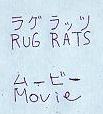 ラグラッツ
RUG RATS
ムービー
Movie